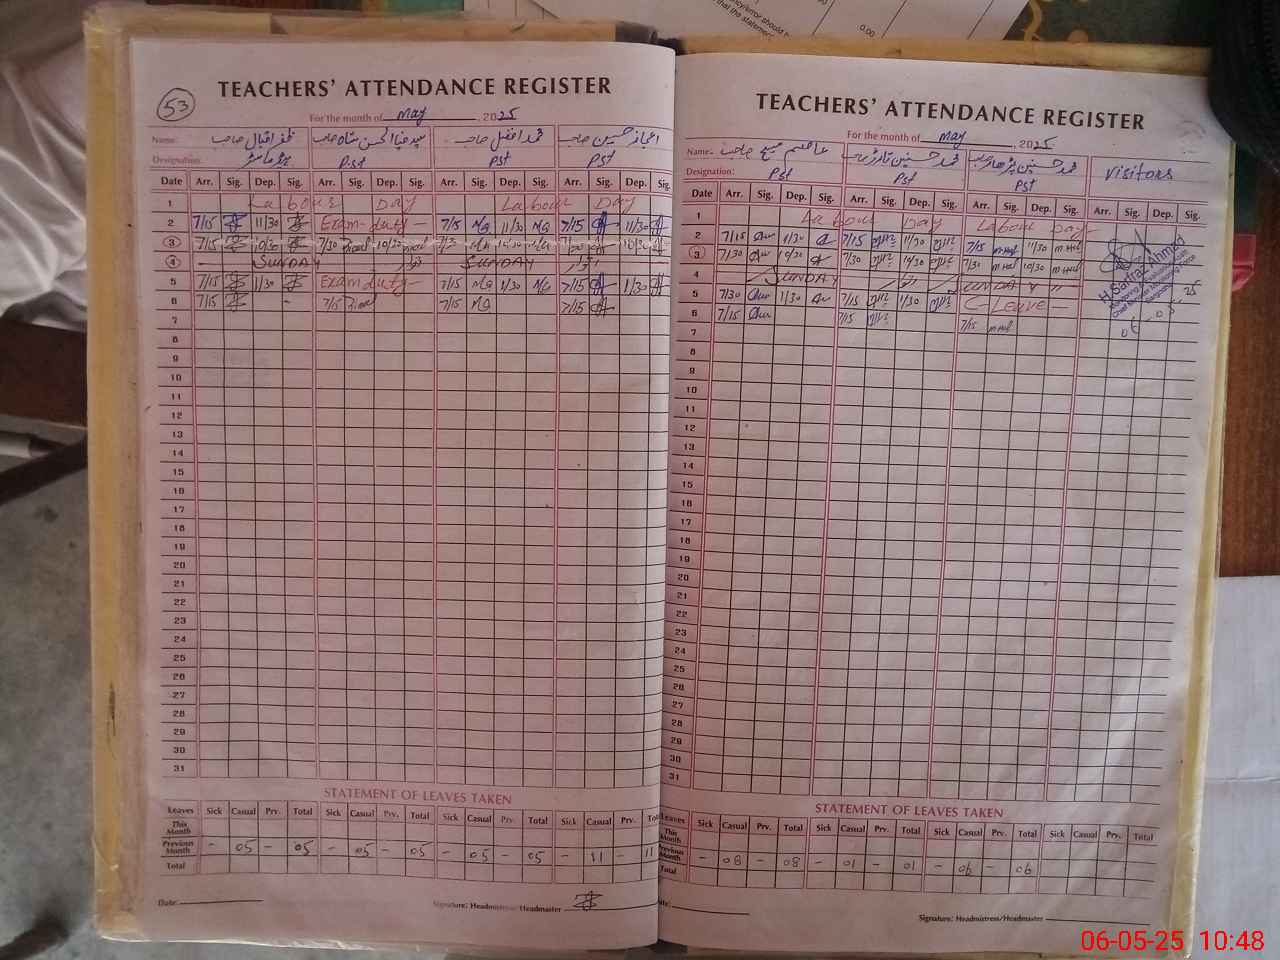 TEACHERS' ATTENDANCE REGISTER
53
For the month of May, 2025
Name: ظفر اقبال صاحب سید ضیاالحسن شاہ صاحب محمد افضل صاحب اعجاز حسین صاحب
Designation: Pst Pst Pst
Date Arr. Sig. Dep. Sig. Arr. Sig. Dep. Sig. Arr. Sig. Dep. Sig. Arr. Sig. Dep. Sig.
1 Labour Day Labour Day
2 7/15 11/30 Exam duty - 7/15 MA 11/30 MA 7/15 11/30
3 7/15 10/30 7/30 10/30 7/30 MA 10/30 MA 7/30 10/30
4 SUNDAY اتوار SUNDAY اتوار
5 7/15 11/30 Exam duty - 7/15 MA 11/30 MA 7/15 11/30
6 7/15 - 7/15 7/15 MA 7/15
7
8
9
10
11
12
13
14
15
16
17
18
19
20
21
22
23
24
25
26
27
28
29
30
31
STATEMENT OF LEAVES TAKEN
Leaves Sick Casual Prv. Total Sick Casual Prv. Total Sick Casual Prv. Total Sick Casual Prv. Total
This Month
Previous Month - 05 - 05 - 05 - 05 - 05 - 05 - 11 - 11
Total
Date: Signature: Headmistress/Headmaster
TEACHERS' ATTENDANCE REGISTER
For the month of May, 2025
Name: عاصم صاحب محمد حسین محمد حسین Visitors
Designation: Pst Pst Pst
Date Arr. Sig. Dep. Sig. Arr. Sig. Dep. Sig. Arr. Sig. Dep. Sig. Arr. Sig. Dep. Sig.
1 Labour Day Labour Day
2 7/15 11/30 7/15 11/30 7/15 11/30
3 7/30 10/30 7/30 10/30 7/30 10/30
4 SUNDAY اتوار SUNDAY
5 7/30 11/30 7/15 11/30 C Leave -
6 7/15 7/15 7/15
7
8
9
10
11
12
13
14
15
16
17
18
19
20
21
22
23
24
25
26
27
28
29
30
31
H Sarfraz Ahmad
06-05-25
STATEMENT OF LEAVES TAKEN
Leaves Sick Casual Prv. Total Sick Casual Prv. Total Sick Casual Prv. Total Sick Casual Prv. Total
This Month
Previous Month - 08 - 08 - 01 - 01 - 06 - 06
Total
Date: Signature: Headmistress/Headmaster
06-05-25 10:48